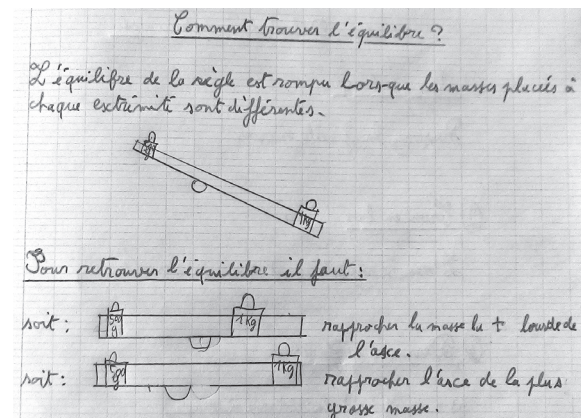 Comment trouver l'équilibre ?
L'équilibre de la règle est rompu lors-que les masses placiés à
chaque extrimité sont différentes.
1Kg
Pour retrouver l'équilibre il faut :
soit :
500
g
1 Kg
rapprocher la masse la + lourde de
l'asce.
soit :
500
g
1Kg
rapprocher l'asce de la plus
grosse masse.